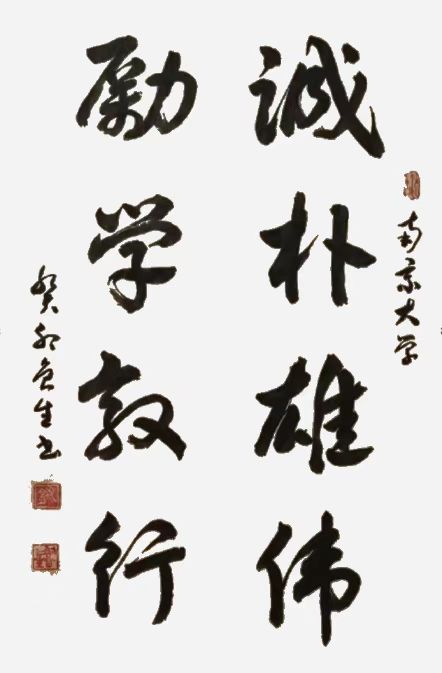 南京大学
诚朴雄伟
勵学敦行
癸卯生书